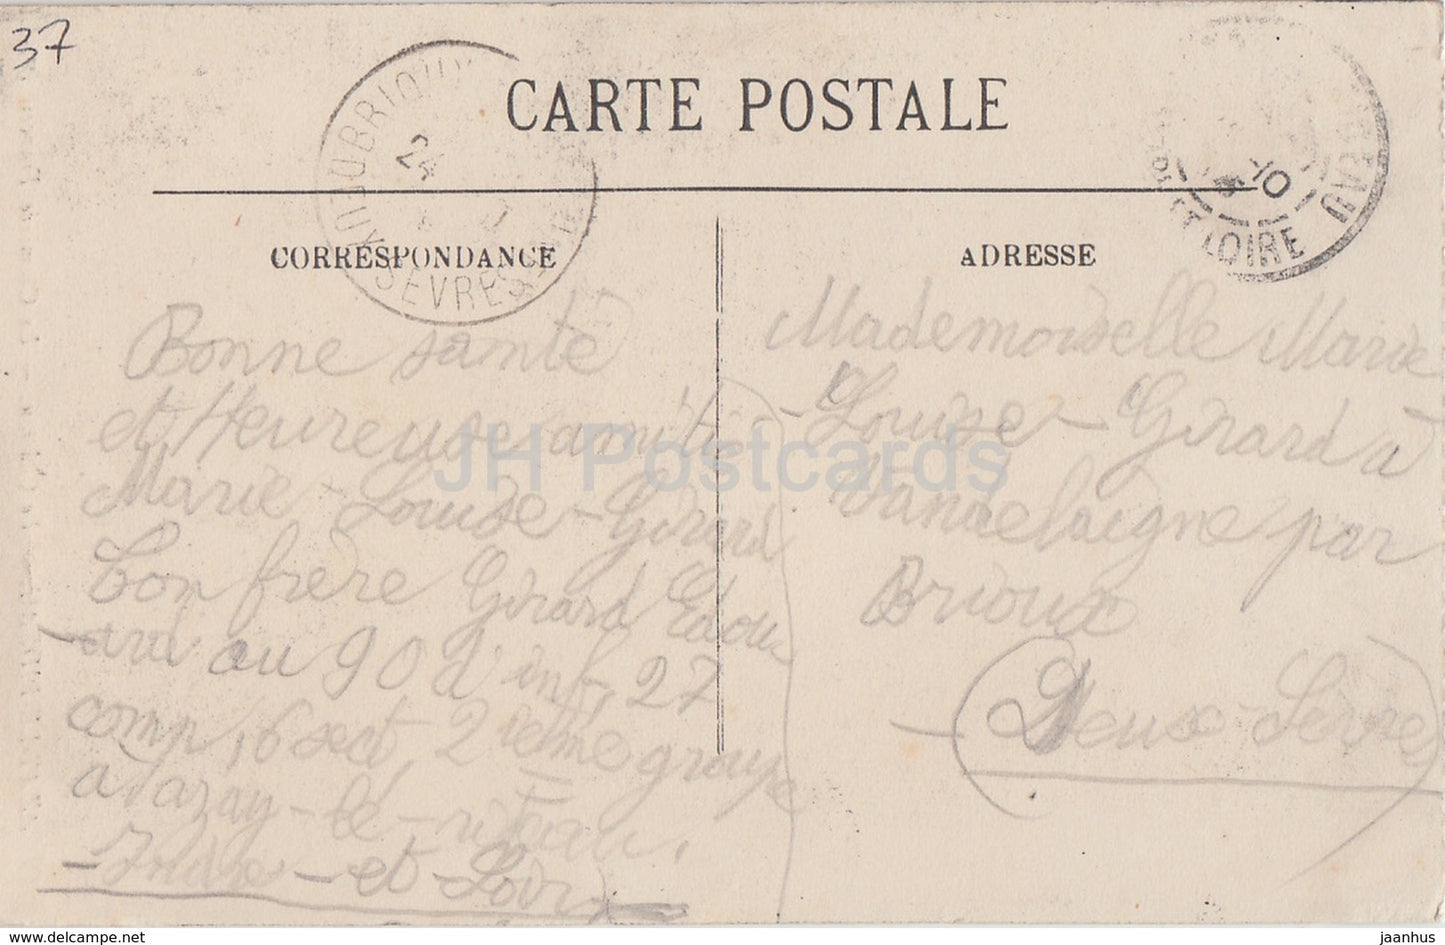 37
CARTE POSTALE
BRIOUX
24
SEVRES
LOIRE
CORRESPONDANCE
ADRESSE
Bonne santé
et Heureuse amitié
Marie-Louise-Girard
ton frère Girard Edou
-ard au 90 d'inf, 27
comp, 6 sect 2ième groupe
a azay-lé-rideau.
-Indre-et-Loire
Mademoiselle Marie
-Louise-Girard à
Vandelaigne par
Brioux
-Deux-Sèvres
JH Postcards
www.delcampe.net
jaanhus